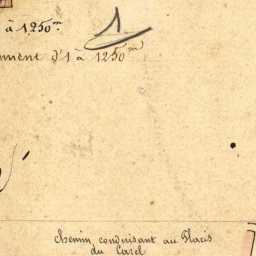 à 1250m
1
à 1250m
chemin conduisant au Placis
du Carel